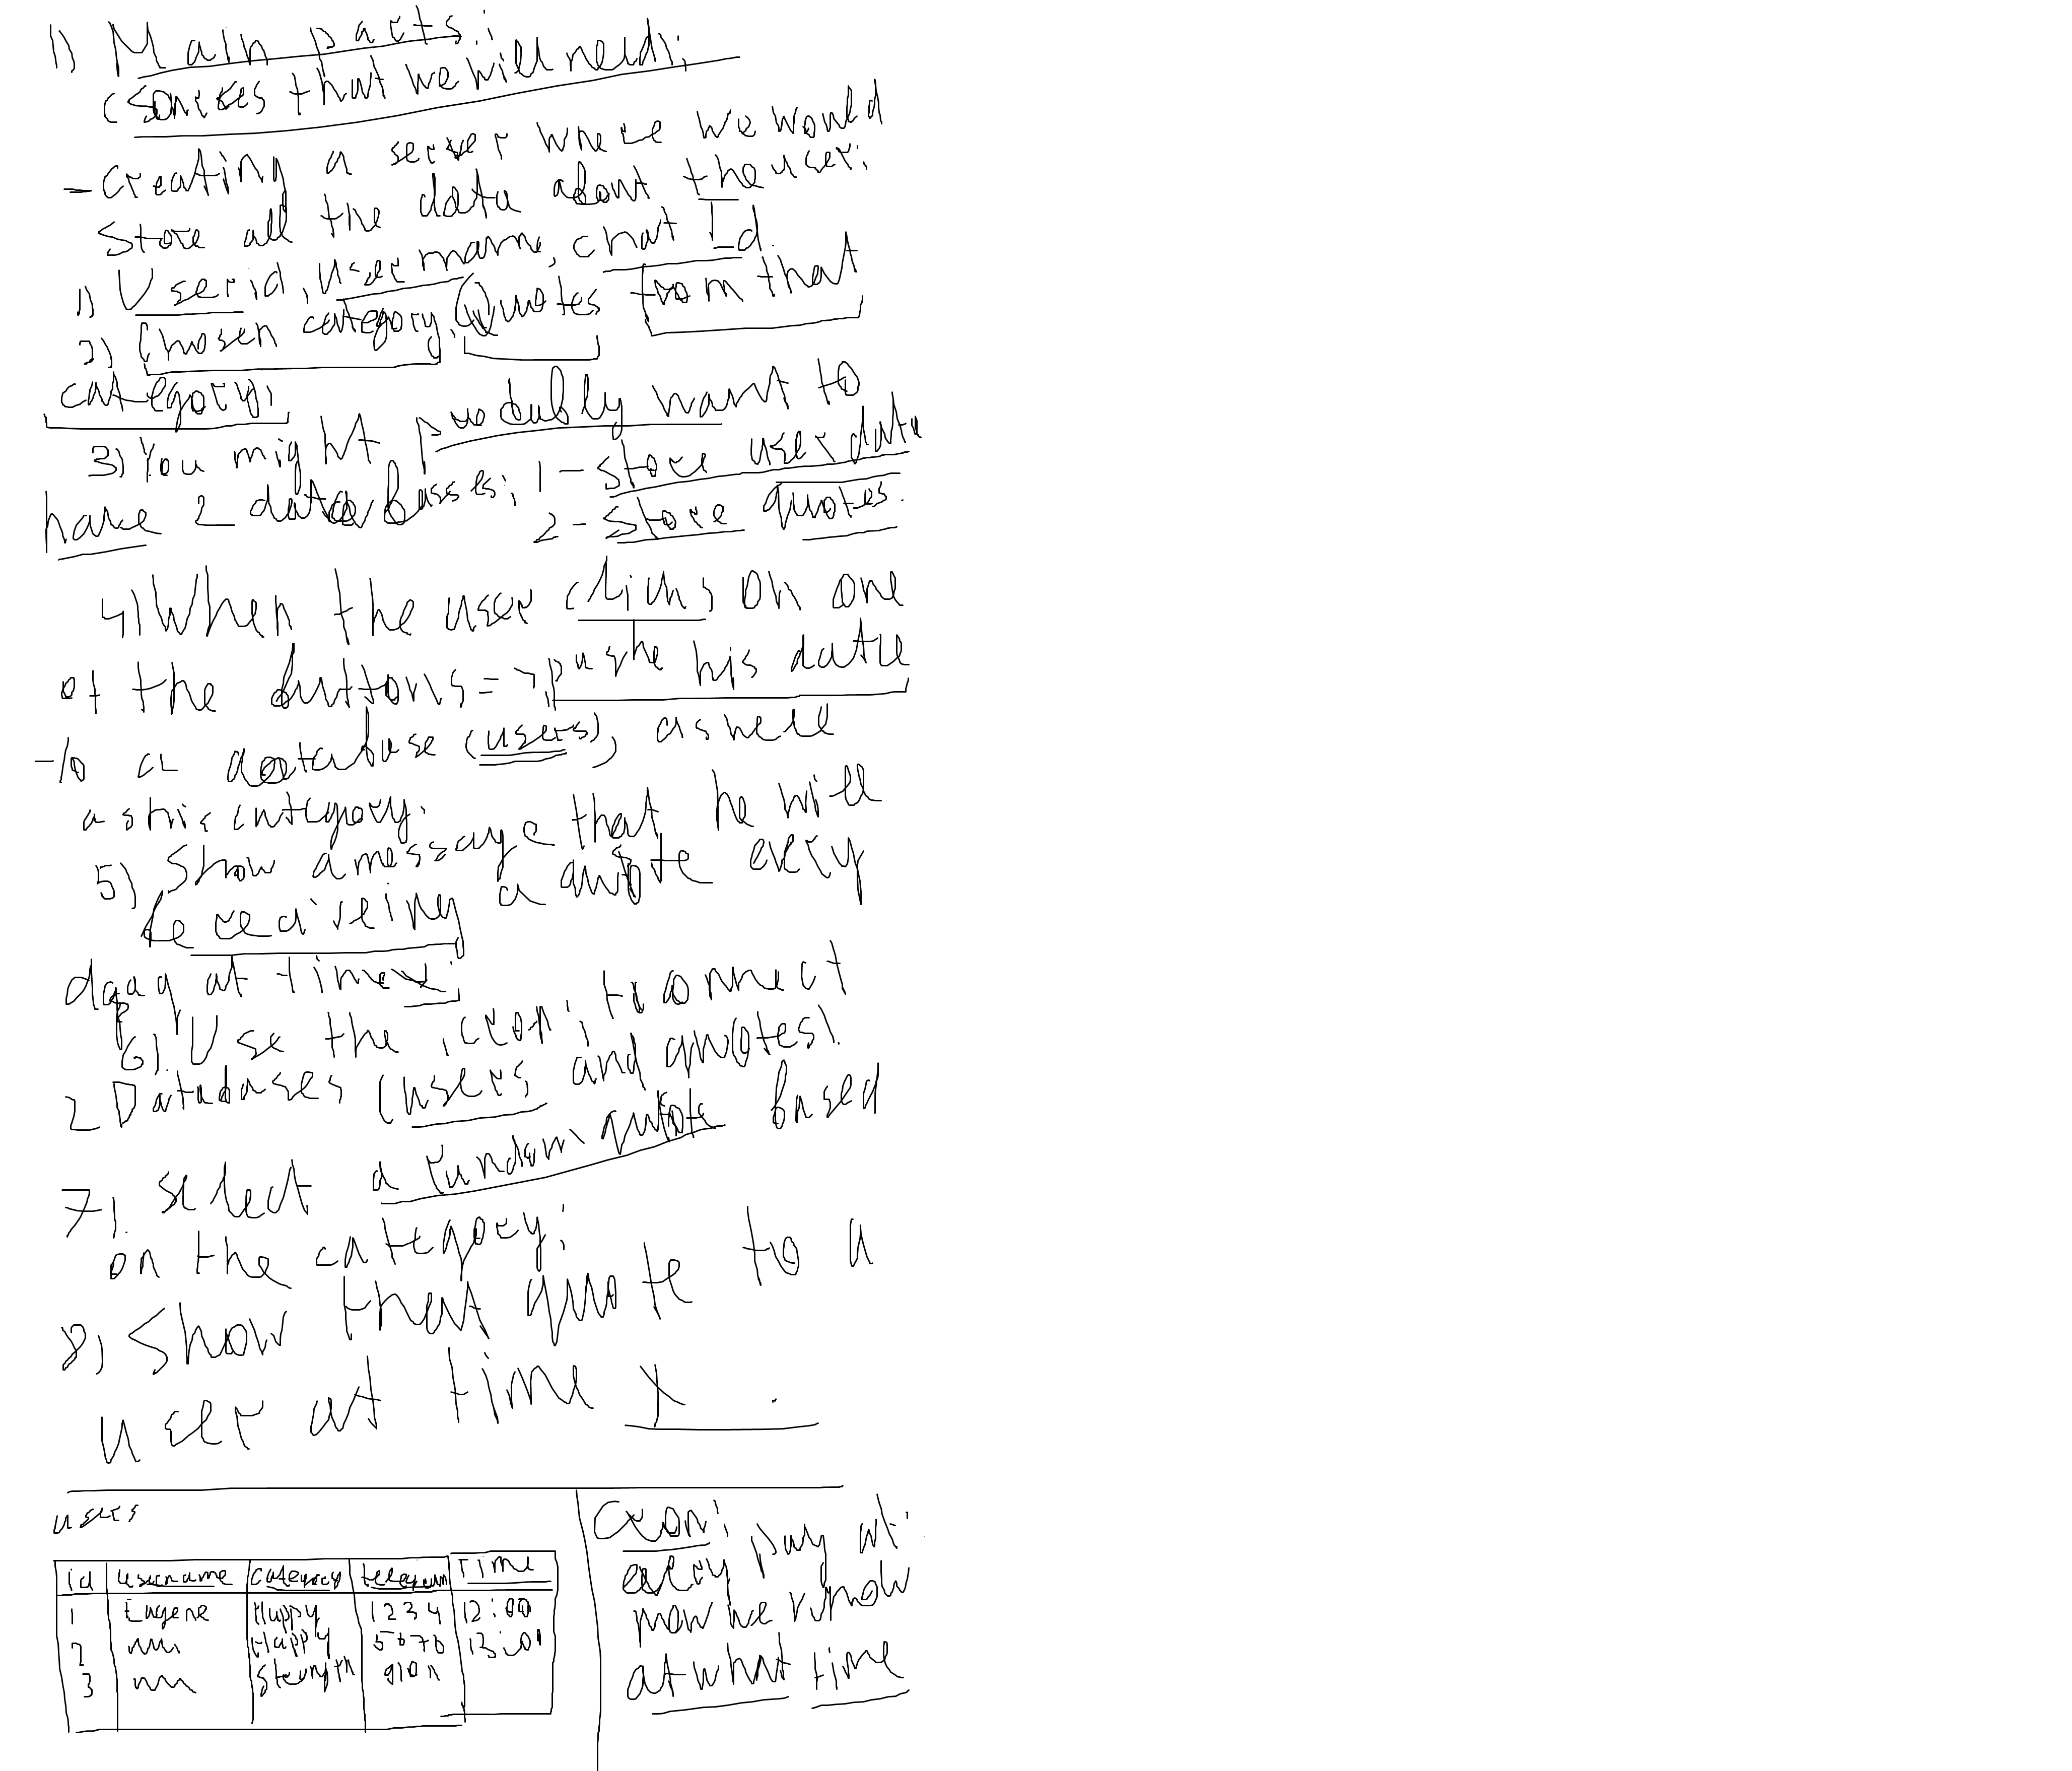 1) Main parts:
(services that we will need:
- Creating a server where we would
store all the data about the user:
1) User id, user name, chat Id.
2) Chosen category, Quotes from that
category;
3) You might probably want to
have 2 databases: 1 - store user data
2 - store quotes.
4) When the user clicks on one
of the buttons => push his data
to a database (users), as well
as his category.
5) Show a message that he will
be receiving a quote every
day at time x:
6) Use the cron; to connect
2 Databases (users and quotes)
7) select a random quote based
on the category:
8) Show that quote to a
user at time x .
users
id username category telegram Time
1 Eugene Happy 1234 12:00
2 Happy 5678 13:00
3 strength
Cron:
every day at:
now we know
at what time